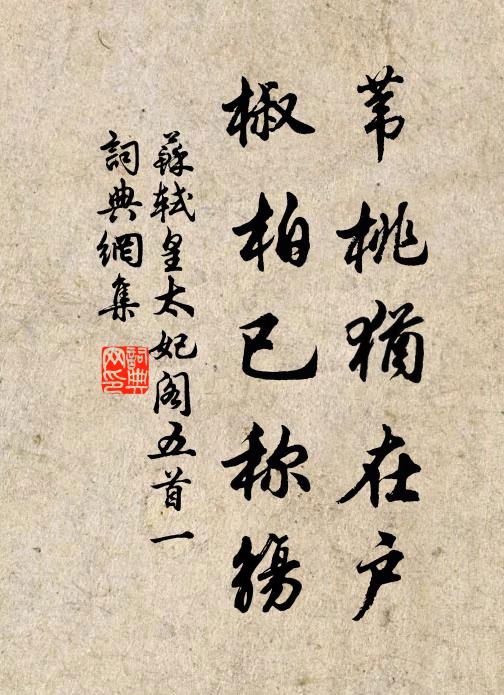 苇桃猶在户
椒柏已称觴
蘇軾皇太妃阁五首一
詞典網集
詞典网印